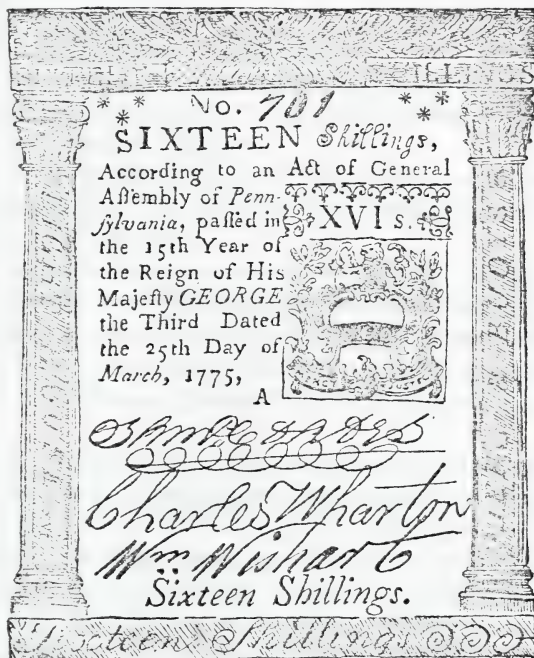 SHILLINGS
No. 701
SIXTEEN Shillings,
According to an Act of General
Aſſembly of Penn-
ſylvania, paſſed in
the 15th Year of
the Reign of His
Majeſty GEORGE
the Third Dated
the 25th Day of
March, 1775,
XVI s.
A
Charles Wharton
Wm Wishart
Sixteen Shillings.
Sixteen Shillings